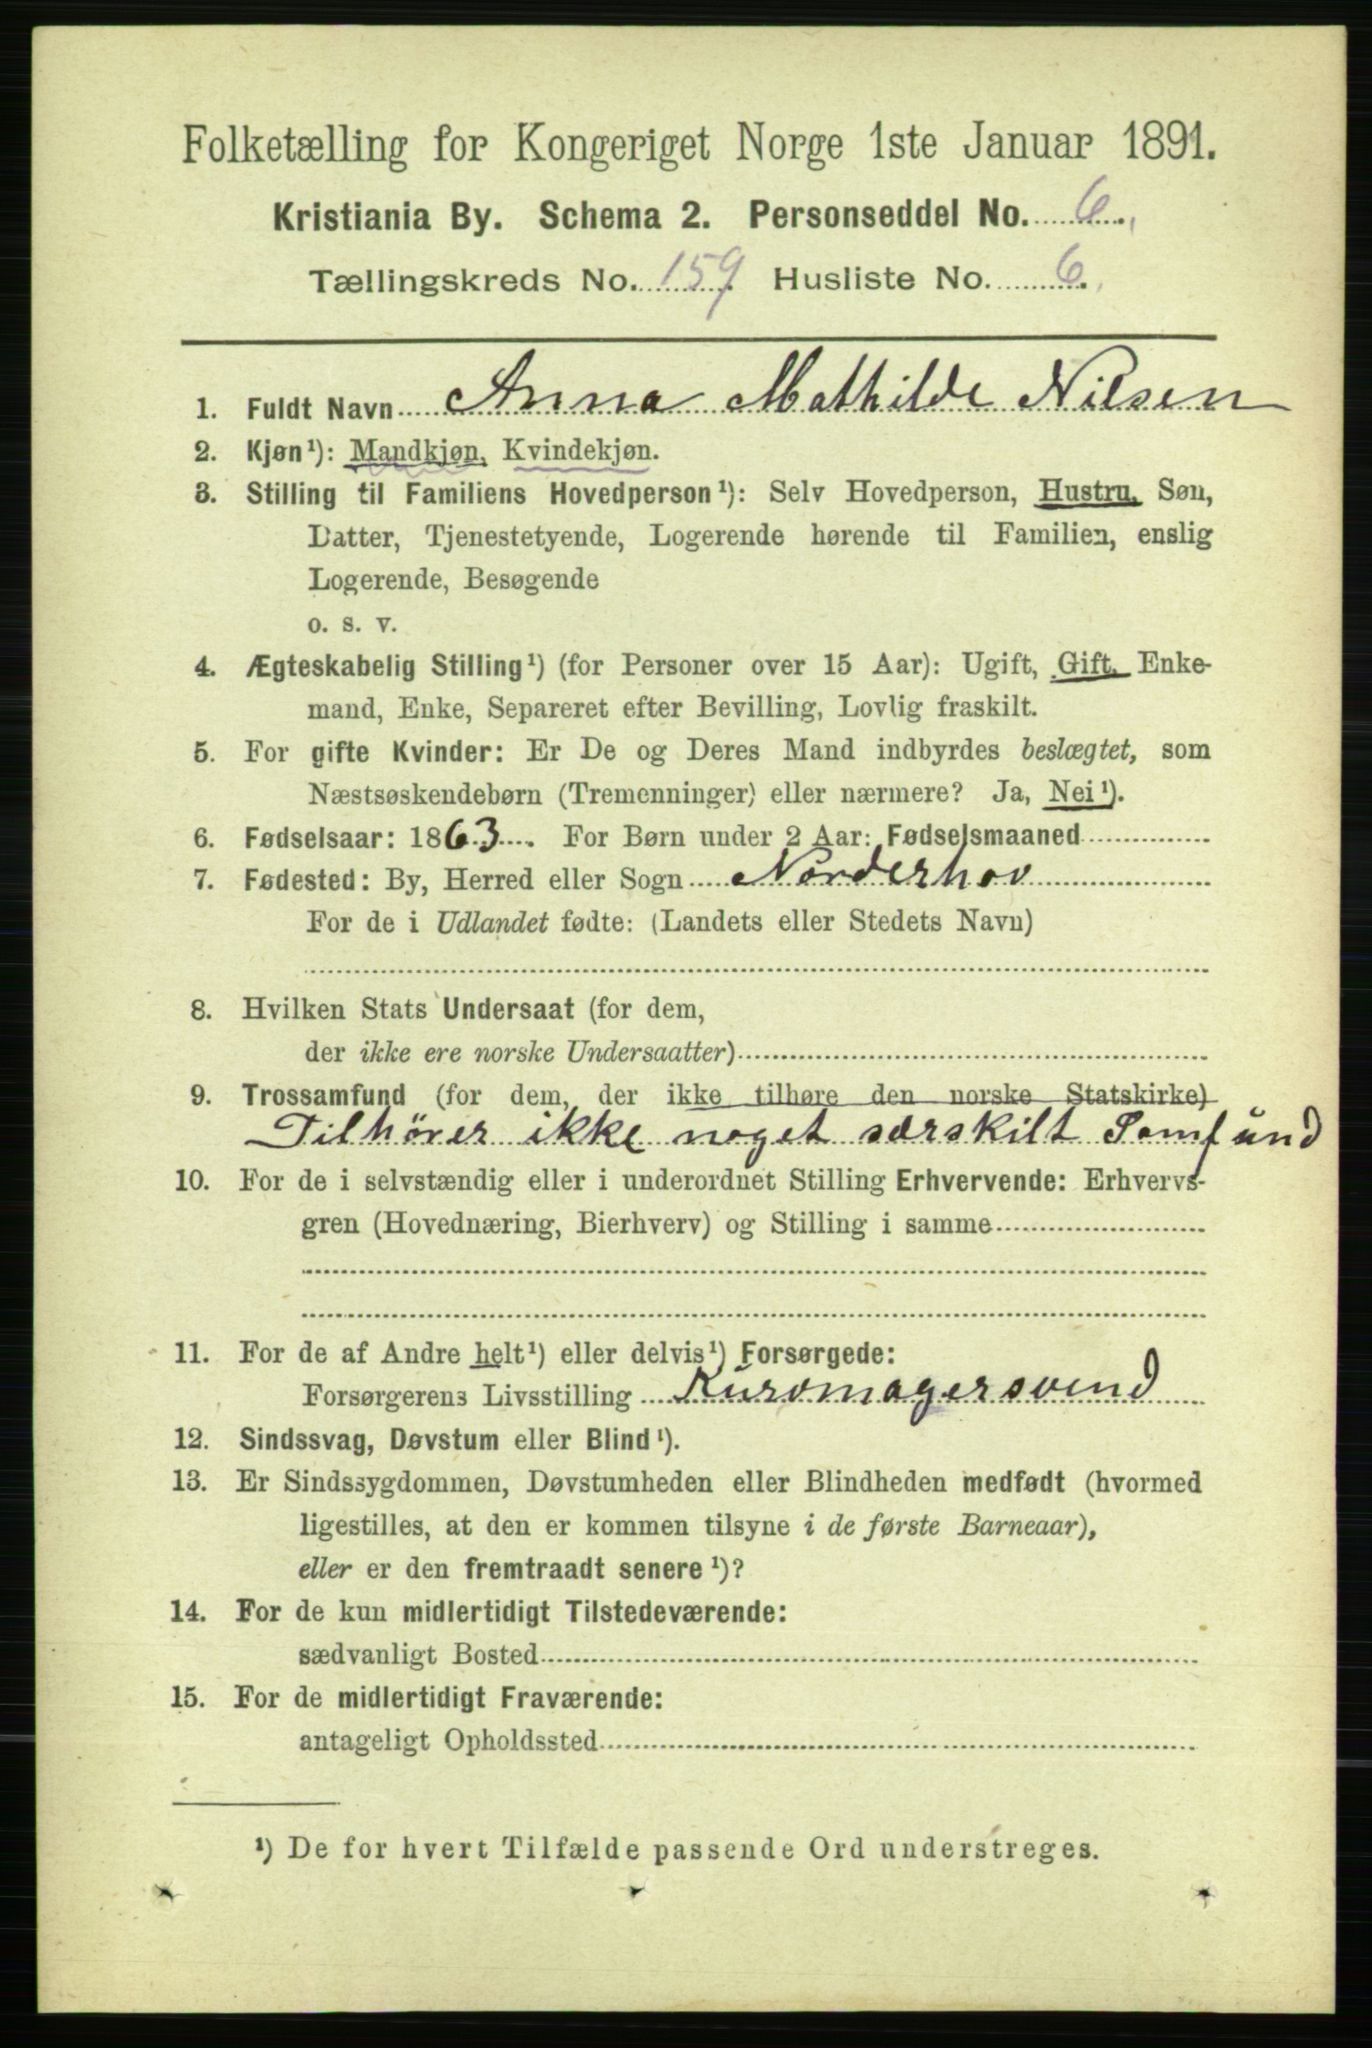 Folketælling for Kongeriget Norge 1ste Januar 1891.
Kristiania By. Schema 2. Personseddel No. 6.
Tællingskreds No. 159. Husliste No. 6.
1. Fuldt Navn Anna Mathilde Nilsen
2. Kjøn¹): Mandkjøn, Kvindekjøn.
3. Stilling til Familiens Hovedperson¹): Selv Hovedperson, Hustru, Søn,
Datter, Tjenestetyende, Logerende hørende til Familien, enslig
Logerende, Besøgende
o. s. v.
4. Ægteskabelig Stilling¹) (for Personer over 15 Aar): Ugift, Gift, Enke-
mand, Enke, Separeret efter Bevilling, Lovlig fraskilt.
5. For gifte Kvinder: Er De og Deres Mand indbyrdes beslægtet, som
Næstsøskendebørn (Tremenninger) eller nærmere? Ja, Nei¹).
6. Fødselsaar: 1863. For Børn under 2 Aar: Fødselsmaaned
7. Fødested: By, Herred eller Sogn Norderhov
For de i Udlandet fødte: (Landets eller Stedets Navn)
8. Hvilken Stats Undersaat (for dem,
der ikke ere norske Undersaatter)
9. Trossamfund (for dem, der ikke tilhøre den norske Statskirke)
Tilhører ikke noget særskilt Samfund
10. For de i selvstændig eller i underordnet Stilling Erhvervende: Erhvervs-
gren (Hovednæring, Bierhverv) og Stilling i samme
11. For de af Andre helt¹) eller delvis¹) Forsørgede:
Forsørgerens Livsstilling Kurvmagersvend
12. Sindssvag, Døvstum eller Blind¹).
13. Er Sindssygdommen, Døvstumheden eller Blindheden medfødt (hvormed
ligestilles, at den er kommen tilsyne i de første Barneaar),
eller er den fremtraadt senere¹)?
14. For de kun midlertidigt Tilstedeværende:
sædvanligt Bosted
15. For de midlertidigt Fraværende:
antageligt Opholdssted
¹) De for hvert Tilfælde passende Ord understreges.